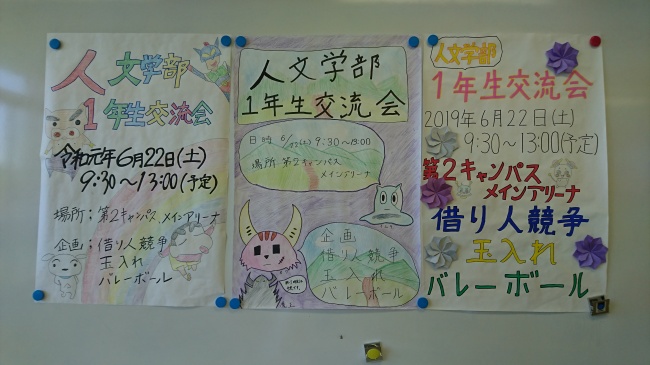 人文学部
1年生交流会
令和元年6月22日(土)
9:30～13:00(予定)
場所:第2キャンパス メインアリーナ
企画:借り人競争
玉入れ
バレーボール
人文学部
1年生交流会
日時 6/22(土) 9:30～13:00
場所 第2キャンパス
メインアリーナ
企画
借り人競争
玉入れ
バレーボール
人文学部
1年生交流会
2019年6月22日(土)
9:30～13:00(予定)
第2キャンパス
メインアリーナ
借り人競争
玉入れ
バレーボール